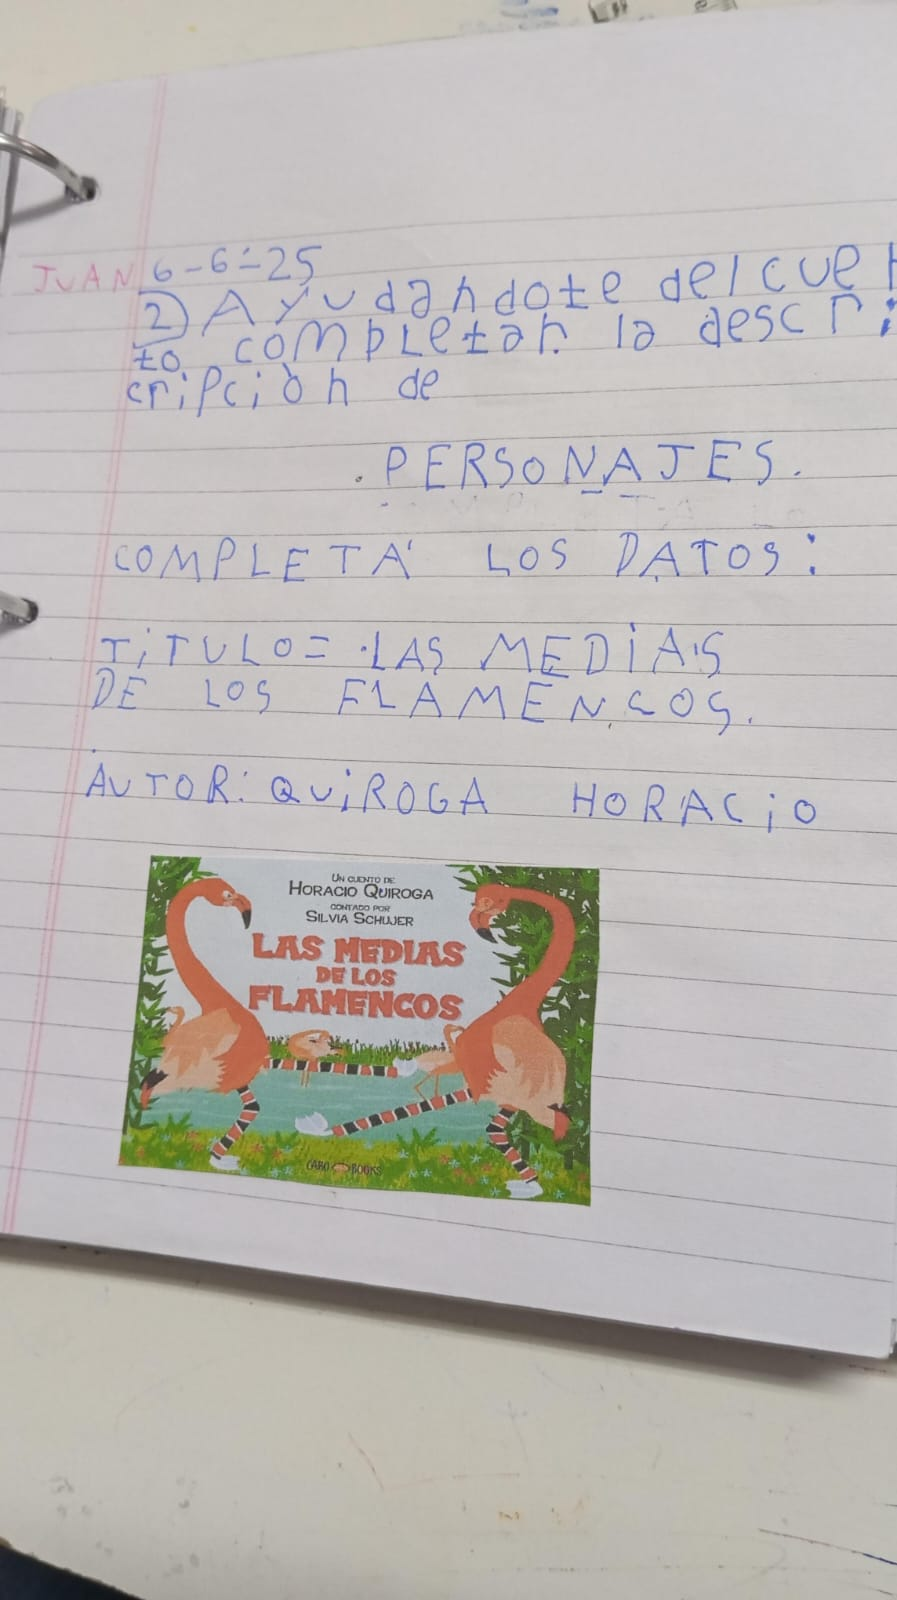 JUAN 6-6-25
2) Ayudandote del cuen
to completar la descri
cripción de
.PERSONAJES.
COMPLETÁ LOS DATOS:
TITULO= .LAS MEDIAS
DE LOS FLAMENCOS.
AUTOR: QUIROGA HORACIO
UN CUENTO DE
HORACIO QUIROGA
CONTADO POR
SILVIA SCHUJER
LAS MEDIAS
DE LOS
FLAMENCOS
CARO BOOKS